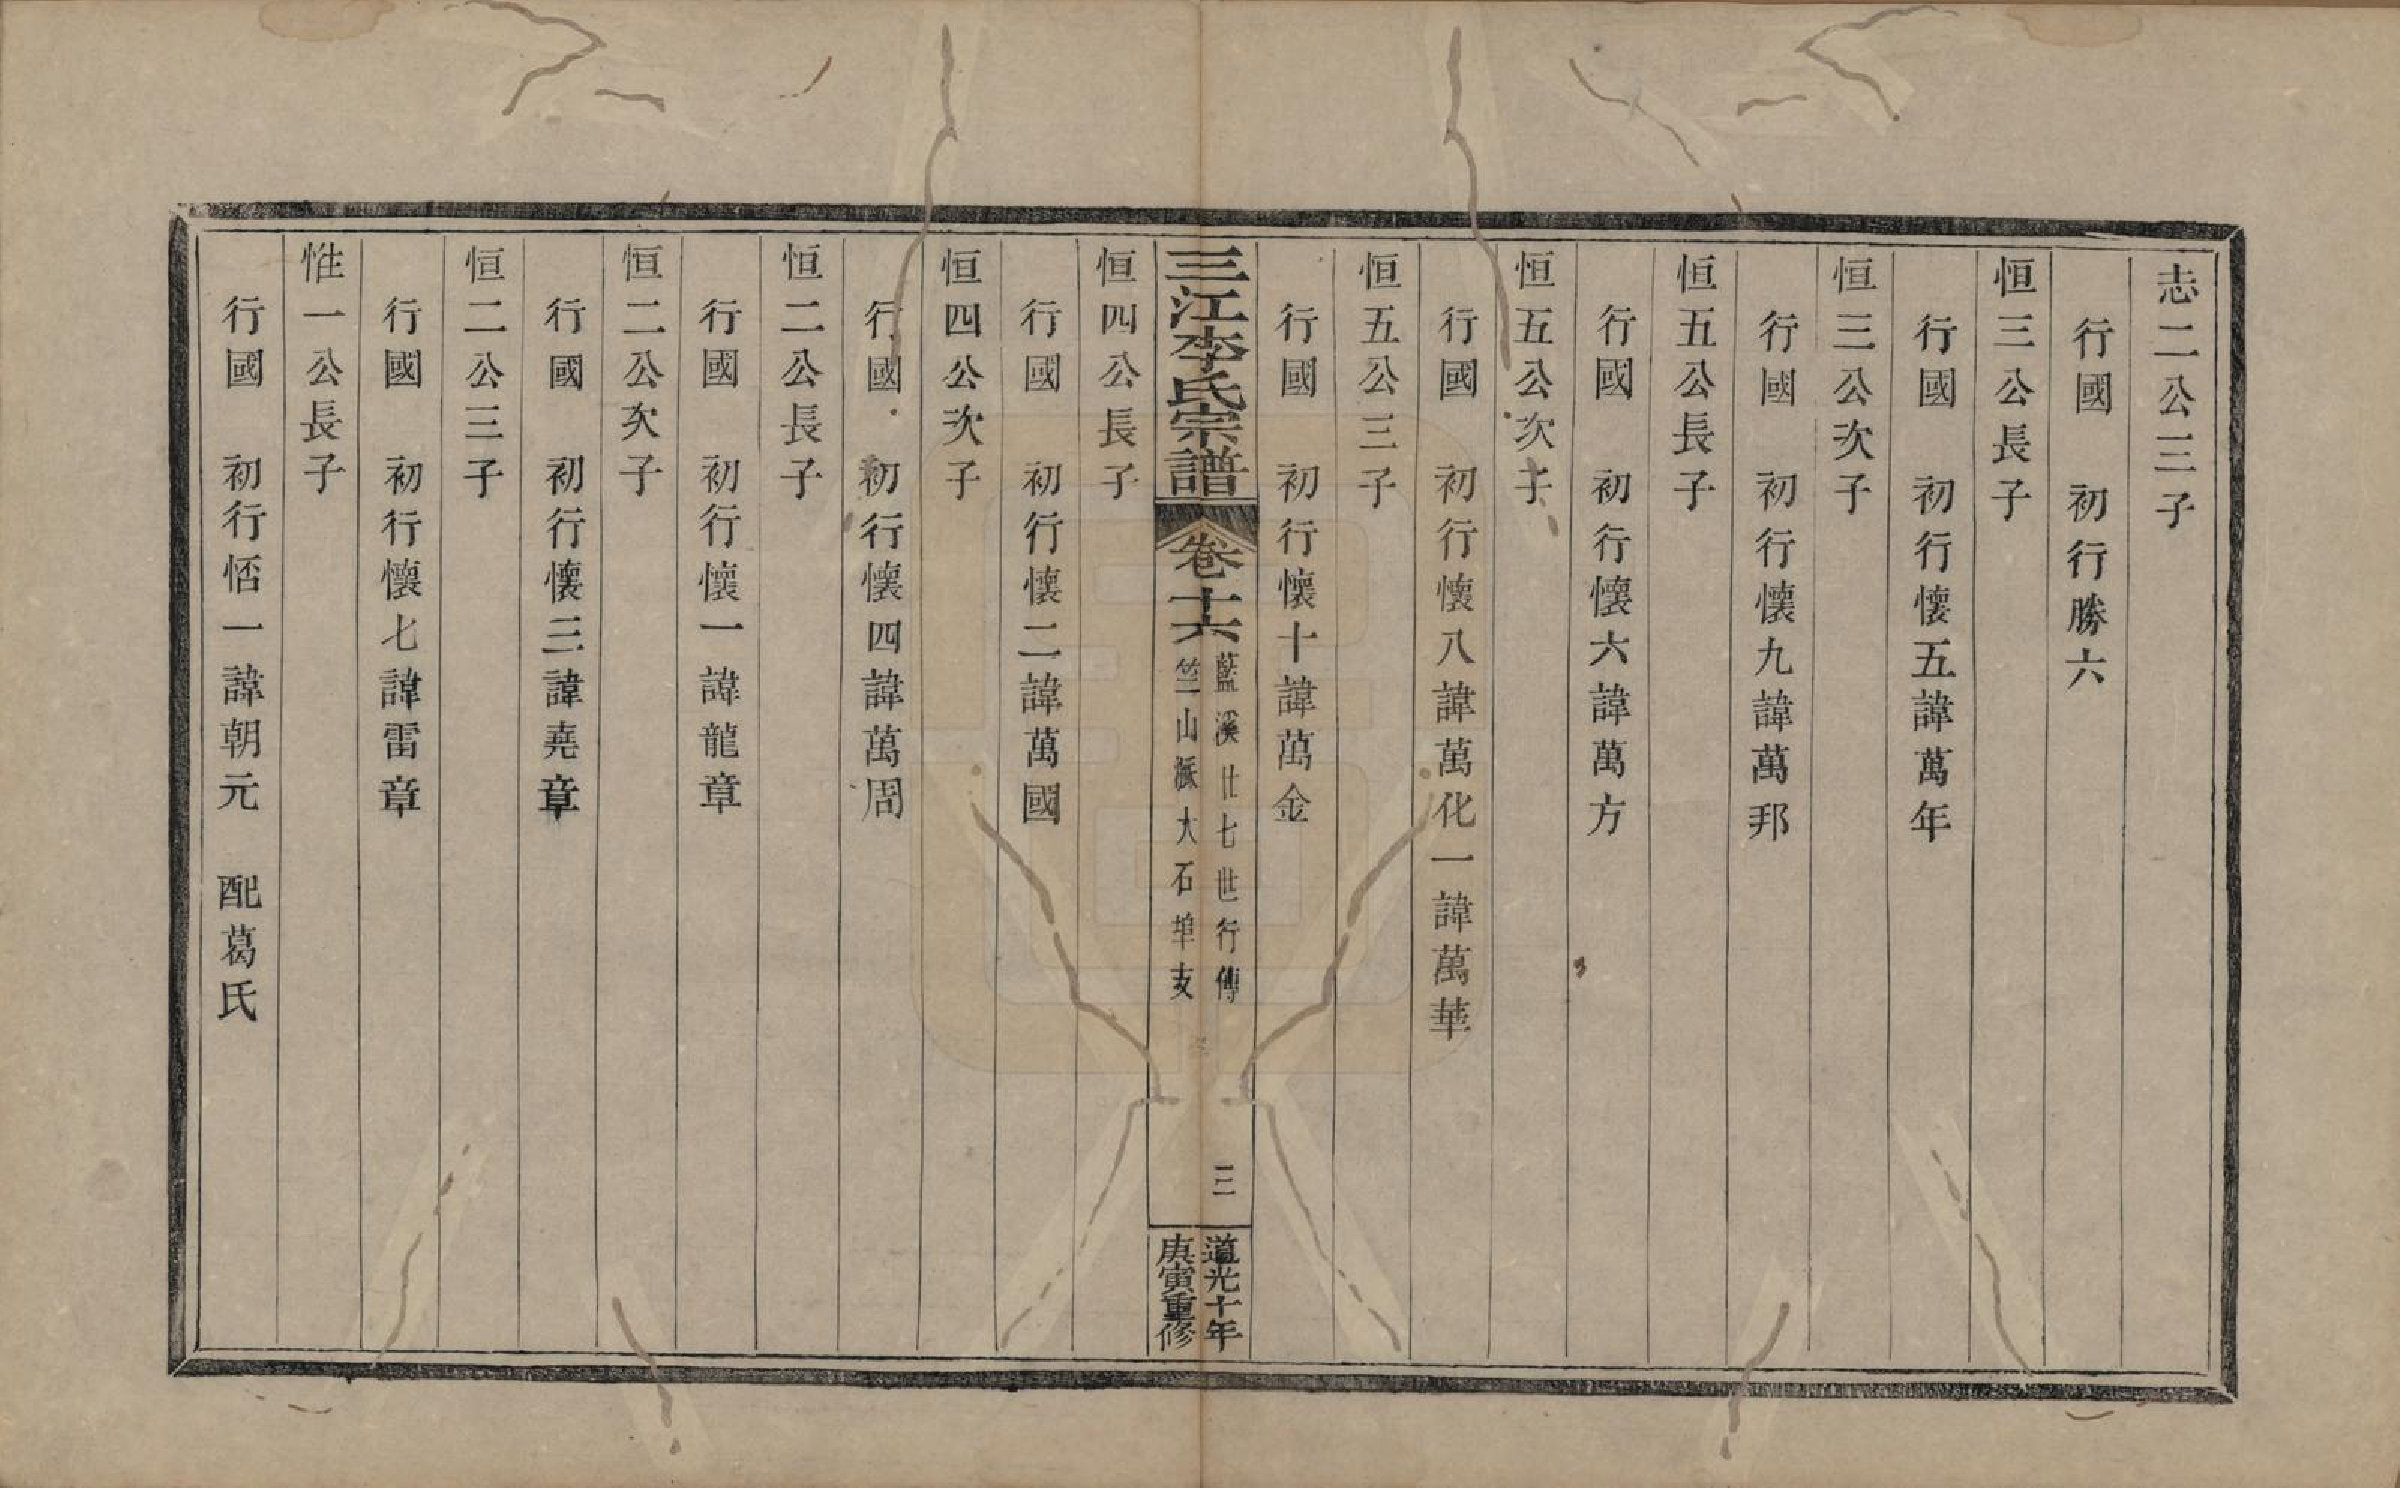 志二公三子
行國　初行勝六
恒三公長子
行國　初行懷五諱萬年
恒三公次子
行國　初行懷九諱萬邦
恒五公長子
行國　初行懷六諱萬方
恒五公次子
行國　初行懷八諱萬化一諱萬華
恒五公三子
行國　初行懷十諱萬金
三江李氏宗譜　卷十六
藍溪廿七世行傳
竺山派大石埠支
三
道光十年
庚寅重修
恒四公長子
行國　初行懷二諱萬國
恒四公次子
行國　初行懷四諱萬周
恒二公長子
行國　初行懷一諱龍章
恒二公次子
行國　初行懷三諱堯章
恒二公三子
行國　初行懷七諱雷章
惟一公長子
行國　初行恬一諱朝元　配葛氏